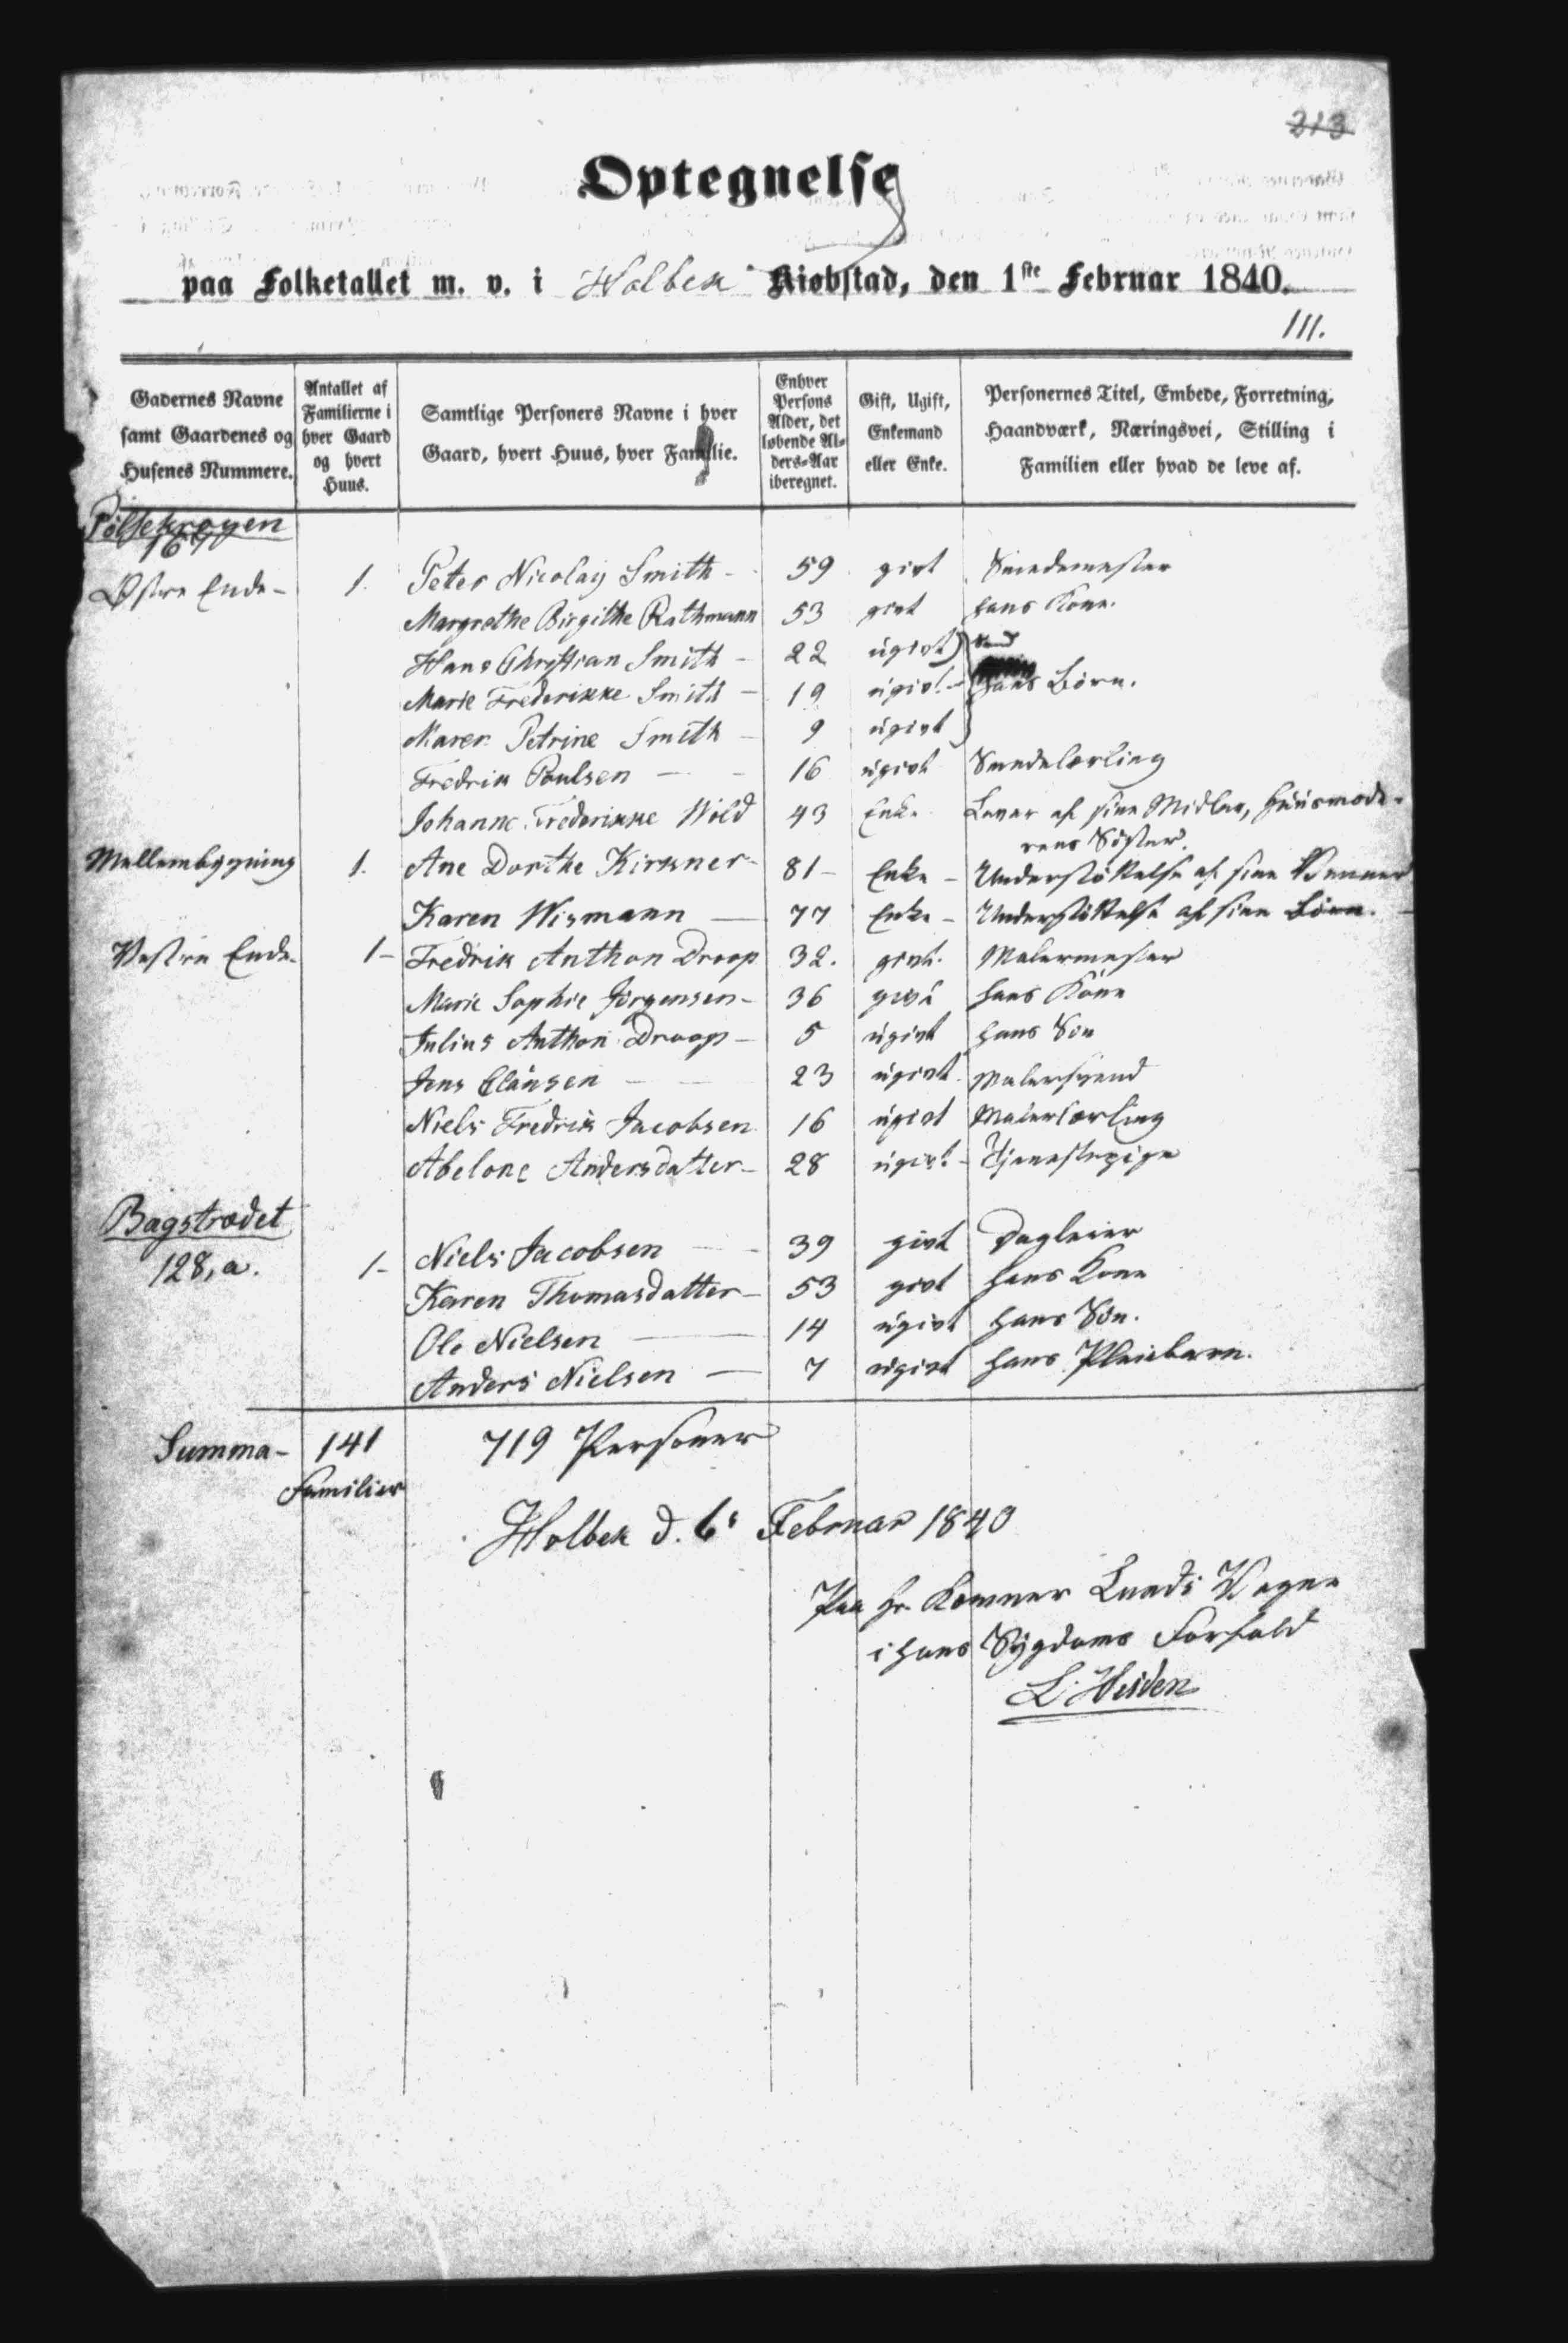 213
Optegnelse
paa Folketallet m. v. i Holbek Kiøbstad, den 1ste Februar 1840.
111.
Gadernes Navne samt Gaardenes og Husenes Nummere.
Antallet af Familierne i hver Gaard og hvert Huus.
Samtlige Personers Navne i hver Gaard, hvert Huus, hver Familie.
Enhver Persons Alder, det løbende Alders-Aar iberegnet.
Gift, Ugift, Enkemand eller Enke.
Personernes Titel, Embede, Forretning, Haandværk, Næringsvei, Stilling i Familien eller hvad de leve af.
Pölsekrogen
167
Østre Ende - 1. Peter Nicolay Smith - 59 givt Smedemester
Margrethe Birgithe Rathmann 53 givt hans Kone.
Hans Christian Smith - 22 ugivt
Marie Frederikke Smith - 19 ugivt - hans Børn.
Maren Petrine Smith - 9 ugivt
Fredrik Poulsen - - 16 ugivt Smedelærling
Johanne Frederikke Wold 43 Enke Lever af sine Midler, Huusmode-
rens Søster.
Mellembygning 1. Ane Dorthe Kirkner - 81 - Enke - Understøttelse af sine Venner
Karen Wismann - 77 Enke - Understøttelse af sine Børn. -
Vestre Ende 1 - Fredrik Anthon Droop 32. givt. Malermester
Marie Sophie Jörgensen - 36 givt hans Kone
Julius Anthon Droop - 5 ugivt hans Søn
Jens Claüsen - - 23 ugivt Malersvend
Niels Fredrik Jacobsen 16 ugivt Malerlærling
Abelone Andersdatter - 28 ugivt - Tjenestepige
Bagstrædet
128, a. 1 - Niels Jacobsen - - 39 givt Dagleier
Karen Thomasdatter - 53 givt hans Kone
Ole Nielsen - 14 ugivt hans Søn.
Anders Nielsen - 7 ugivt hans Pleiebarn.
Summa - 141 719 Personer
Familier
Holbek d. 6t Februar 1840
Paa Hr. Kæmner Lunds Vegne
i hans Sygdoms Forfald
L. Heiden